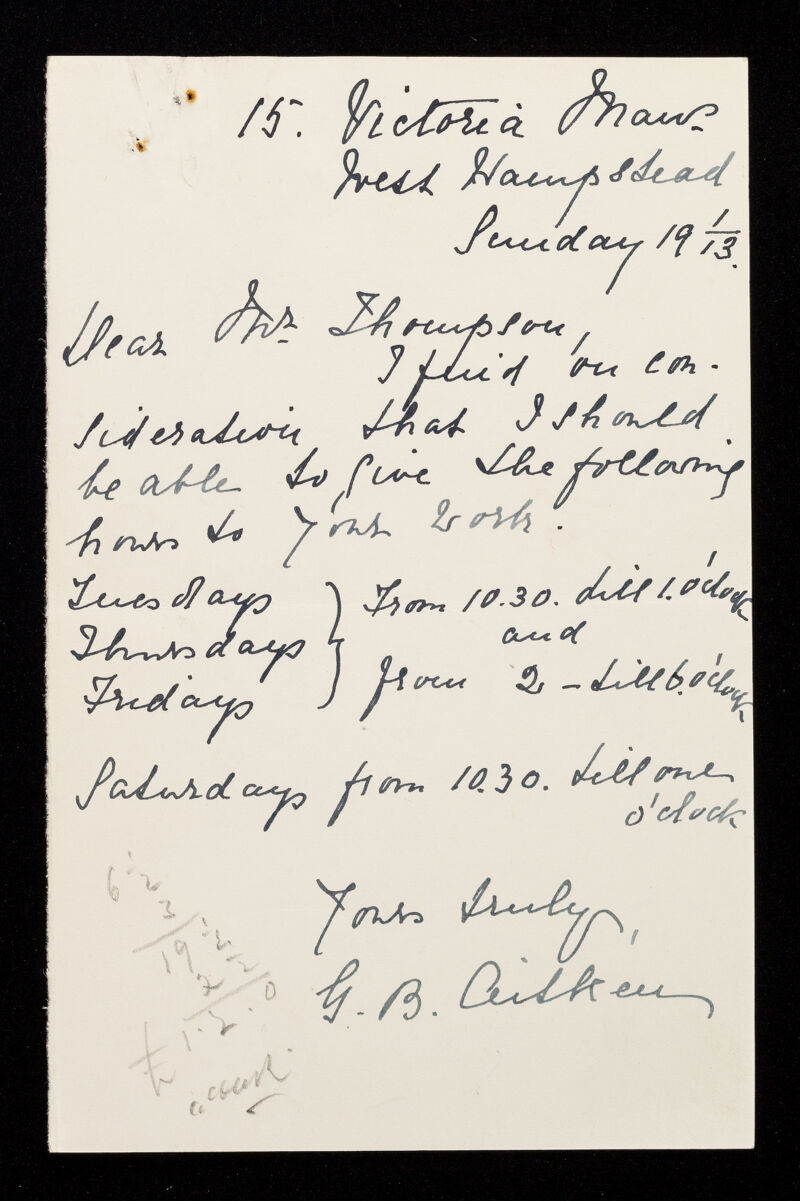 15. Victoria Mans
West Hampstead
Sunday 19 1/13.
Dear Mr Thompson,
I find on con-
sideration that I should
be able to give the following
hours to your work.
Tuesdays } From 10.30. till 1. o'clock
Thursdays and
Fridays from 2 - till 6. o'clock
Saturdays from 10.30. till one
o'clock
Yours truly,
G. B. Aitken
6 1/2
3
19 1/2
2
£1.2.0
a week.